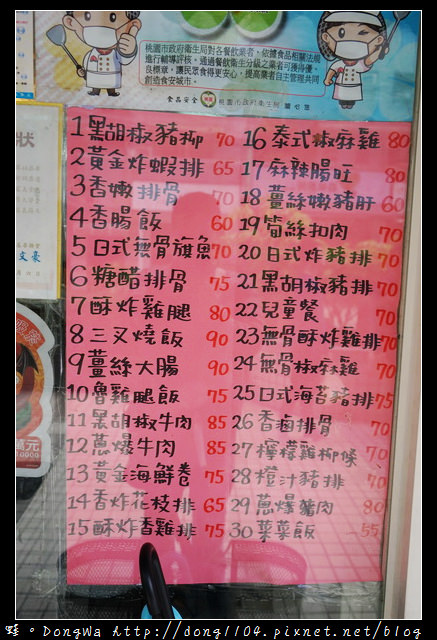 桃園市政府衛生局對各餐飲業者,依據食品相關法規
進行輔導評核,通過衛生分級之業者可獲得優、
良標章,讓民眾食得更安心,提高業者自主管理共同
創造食安城市。
食品安全 桃園市政府衛生局 關心您
狀
文豪
1黑胡椒豬柳 70
2黃金炸蝦排 65
3香嫩排骨 70
4香腸飯 60
5日式無骨旗魚70
6糖醋排骨 75
7酥炸雞腿 80
8三叉燒飯 90
9薑絲大腸 90
10魯雞腿飯 75
11黑胡椒牛肉 85
12蔥爆牛肉 85
13黃金海鮮卷 75
14香炸花枝排 65
15酥炸香雞排 75
16泰式椒麻雞 80
17麻辣腸旺 80
18薑絲嫩豬肝 60
19筍絲扣肉 70
20日式炸豬排 70
21黑胡椒豬排 70
22兒童餐 70
23無骨酥炸雞排70
24無骨椒麻雞 70
25日式海苔豬排75
26香鹵排骨 70
27檸檬雞柳條 70
28橙汁豬排 70
29蔥爆豬肉 80
30菜菜飯 55
蛙。DongWa Http://dong1104.pixnet.net/blog